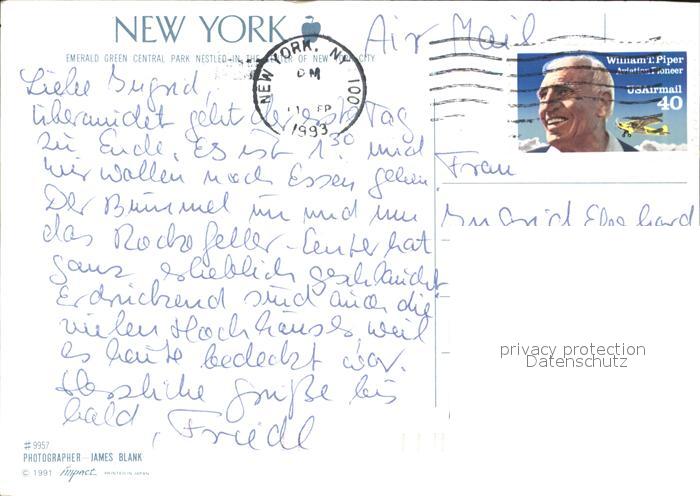 NEW YORK
EMERALD GREEN CENTRAL PARK NESTLED IN THE CENTER OF NEW YORK CITY
Air Mail
NEW YORK, NY 100
PM
1993
William T. Piper
Aviation Pioneer
USAirmail
40
Liebe Sigrid,
übermüdet geht der erste Tag
zu Ende. Es ist 1³⁰ und
wir wollen noch Essen gehen.
Der Bummel im und um
das Rockefeller-Center hat
ganz erheblich geschlaucht
Erdrückend sind auch die
vielen Hochhäuser, weil
es heute bedeckt war.
Herzliche Grüße bis
bald, Friedl
Frau
Eberhard
privacy protection
Datenschutz
#9957
PHOTOGRAPHER - JAMES BLANK
© 1991 impact PRINTED IN JAPAN